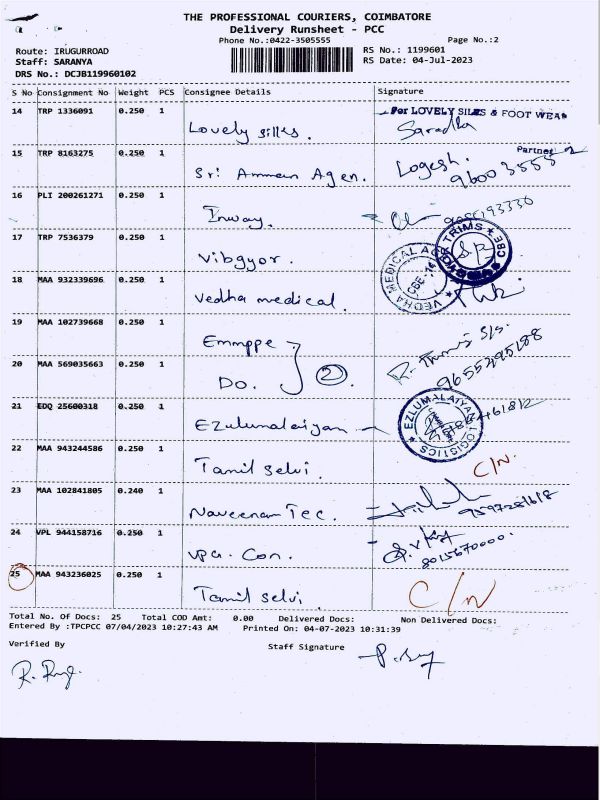 THE PROFESSIONAL COURIERS, COIMBATORE
Delivery Runsheet - PCC
Phone No.:0422-3505555 Page No.:2
Route: IRUGURROAD RS No.: 1199601
Staff: SARANYA RS Date: 04-Jul-2023
DRS No.: DCJB119960102
S No Consignment No Weight PCS Consignee Details Signature
14 TRP 1336091 0.250 1 Lovely silks. For LOVELY SILKS & FOOT WEAR Saradha
Partner
15 TRP 8163275 0.250 1 Sri Amman Agen. Logesh.
16 PLI 200261271 0.250 1 Inway.
17 TRP 7536379 0.250 1 Vibgyor. TRIMS CBE S.R
18 MAA 932339696 0.250 1 Vedha medical. VEDHA MEDICAL CBE-14
19 MAA 102739668 0.250 1 Emmppe
20 MAA 569035663 0.250 1 Do. 2 9655295188
21 EDQ 25600318 0.250 1 Ezulumalaiyan EZLUMALAIYAN LOGISTICS
22 MAA 943244586 0.250 1 Tamil selvi. C/N.
23 MAA 102841805 0.240 1 Naveenam Tec.
24 VPL 944158716 0.250 1 Vpa. Con. 8015670000.
25 MAA 943236025 0.250 1 Tamil selvi C/N
Total No. Of Docs: 25 Total COD Amt: 0.00 Delivered Docs: Non Delivered Docs:
Entered By :TPCPCC 07/04/2023 10:27:43 AM Printed On: 04-07-2023 10:31:39
Verified By Staff Signature